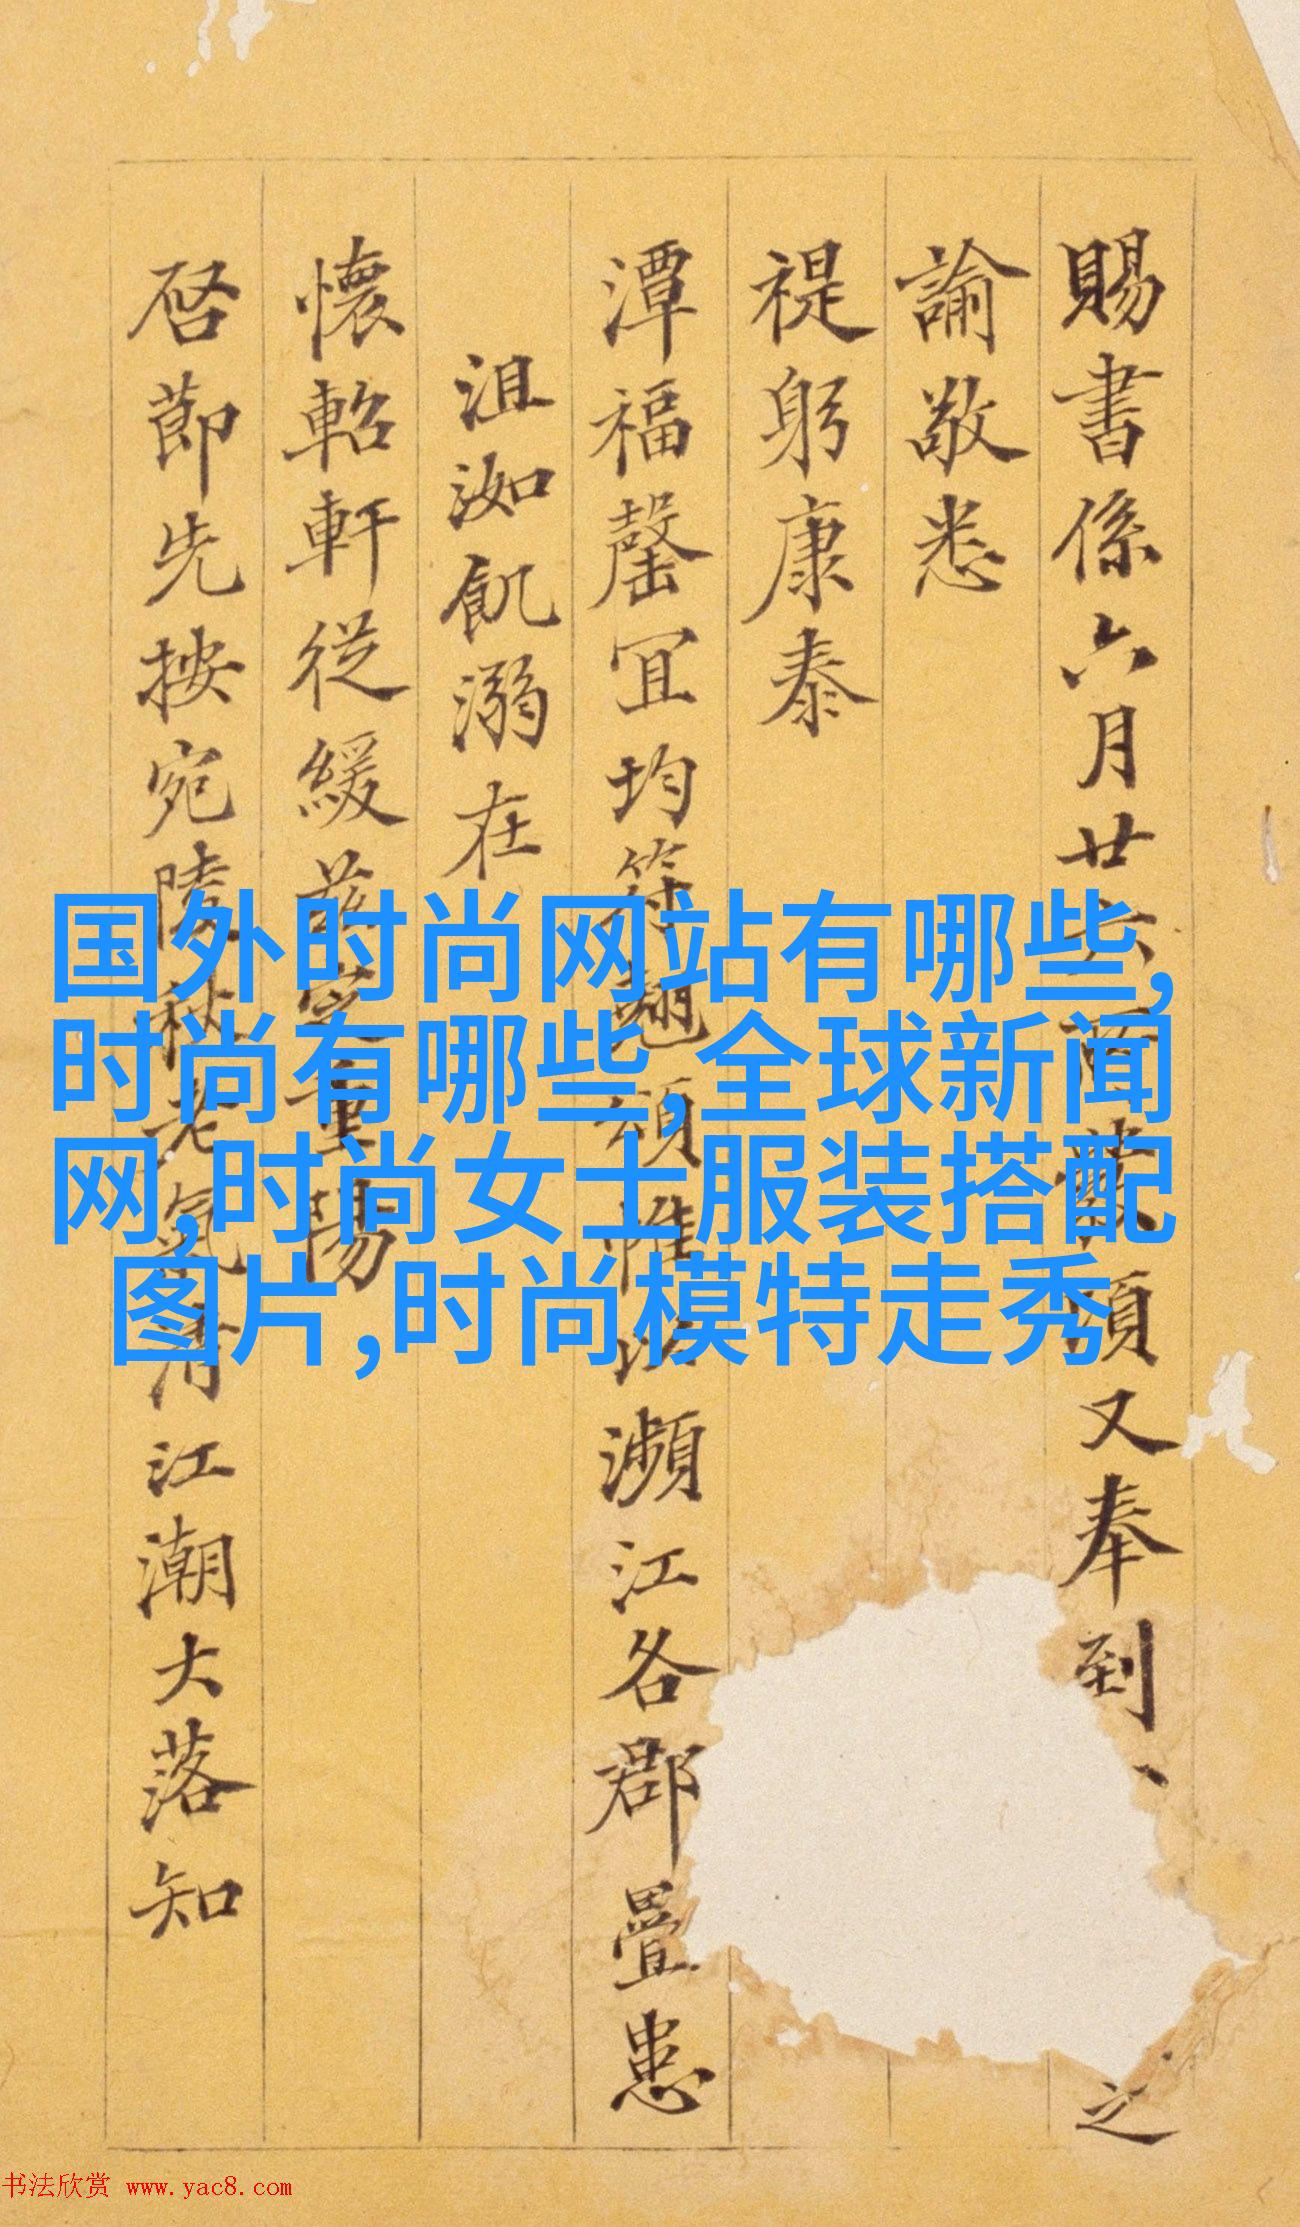 賜書係六月廿六
頂又奉到
之
諭敬悉
禔躬康泰
潭福罄宜均符
頌惟
瀕江各郡疊患
沮洳飢溺在
懷軺軒從緩
重陽
啓節先按宛陵秋老氣清江潮大落知
国外时尚网站有哪些,
时尚有哪些,全球新闻
网,时尚女士服装搭配
图片,时尚模特走秀
书法欣赏 www.yac8.com